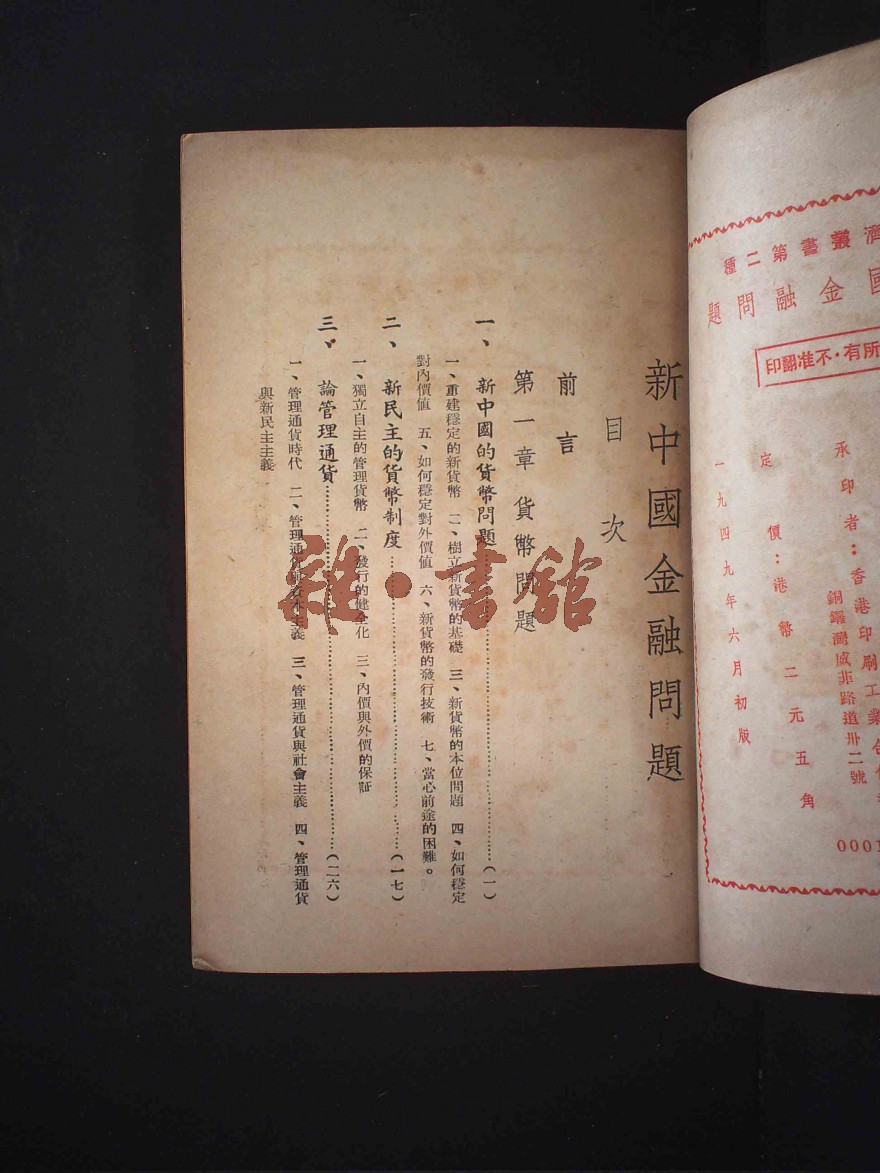 濟叢書第二種
國金融問題
所有·不准翻印
承印者：香港印刷工業合作
銅鑼灣威菲路道卅二號
定價：港幣二元五角
一九四九年六月初版
0001
新中國金融問題
目次
前言
第一章 貨幣問題
一、新中國的貨幣問題……(一)
一、重建穩定的新貨幣 二、樹立新貨幣的基礎 三、新貨幣的本位問題 四、如何穩定
對內價值 五、如何穩定對外價值 六、新貨幣的發行技術 七、當心前途的困難。
二、新民主的貨幣制度……(一七)
一、獨立自主的管理貨幣 二、發行的健全化 三、內價與外價的保証
三、論管理通貨……(二六)
一、管理通貨時代 二、管理通貨與資本主義 三、管理通貨與社會主義 四、管理通貨
與新民主主義
雜·書館